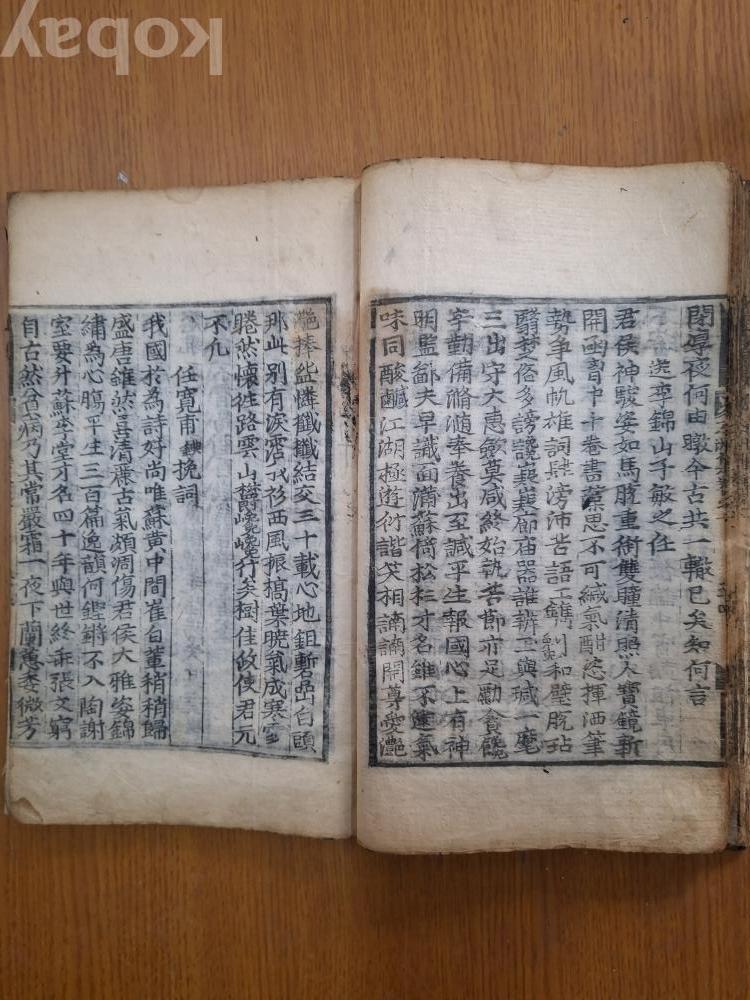 kobay
閉厚夜何由暾今古共一轍已矣知何言
送李錦山子敏之任
君侯神駿姿如馬脫重銜雙瞳清照人寶鏡新
開函胷中十卷書藻思不可緘氣酣恣揮洒筆
勢爭風帆雄詞肆滂沛苦語工鐫刓和璧脫玷
翳楚俗多謗讒巍巍廊庙器誰辨玉與珹一麾
三出守大惠欽莫咸終始執苦節亦足勵貪饞
字動備滫瀡奉養出至諴平生報國心上有神
明監鄙夫早識面蕭蘇倚松杉才名雖不逮氣
味同酸醎江湖極遊衍諧笑相諵諵開尊愛灔
灔捧盐憐孅孅結交三十載心地鉏嶄喦白頭
那此別有淚霑戍衫西風振槁葉曉氣成寒
睠然懷往路雲山欝巉巉行矣樹佳政使君元
不凡
任寬甫錪挽詞
我國於爲詩好尚唯蘇黃中間崔白輩稍稍歸
盛唐雖然喜清蘼古氣頗凋傷君侯大雅姿錦
繡爲心腸平生三百篇逸韻何鏗鏘不入陶謝
室要升蘇李堂才名四十年與世終乖張文窮
自古然貧病乃其常嚴霜一夜下蘭蕙委微芳